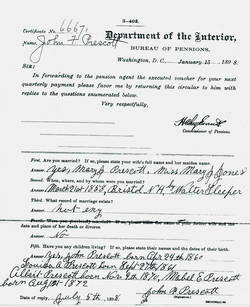 3-402.
Certificate No. 6667,
Name, John F. Prescott
Department of the Interior,
BUREAU OF PENSIONS,
Washington, D. C., January 15, 1898.
SIR:
In forwarding to the pension agent the executed voucher for your next
quarterly payment please favor me by returning this circular to him with
replies to the questions enumerated below.
Very respectfully,
Commissioner of Pensions.
First. Are you married? If so, please state your wife's full name and her maiden name.
Answer. Yes, Mary J Prescott, Miss Mary J Jones
Second. When, where, and by whom were you married?
Answer. March 21st 1858, Bristol, N H, Walter Sleeper
Third. What record of marriage exists?
Answer. Not any
date and place of her death or divorce.
Answer. No
Fifth. Have you any children living? If so, please state their names and the dates of their birth.
Answer. Yes, John Prescott born Apr 24th 1860
Prescott born Sept 27th 1861
Albert Prescott born Nov 9th 1870, Mabel E Prescott
born Aug 12t 1872
John F Prescott
(Signature.)
Date of reply, July 5th, 1898